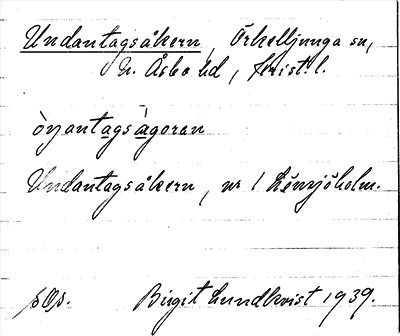 Undantagsåkern, Örkelljunga sn,
N. Åsbo hd, Krist. l.
ònantagsàgoran
Undantagsåkern, nr 1 Lönsjöholm.
sOs. Birgit Lundkvist 1939.